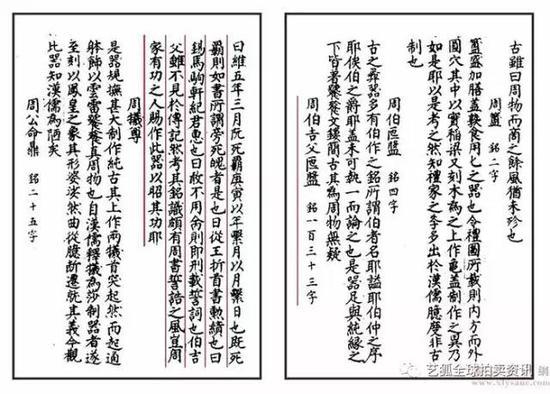 古雖曰周物而商之餘風猶未殄也
周簠 銘二字
簠盛加膳盖食用匕之器也今禮圖所載則内方而外
圓穴其中以實稻粱又刻木為之上作龜盖制作之異乃
如是耶以是考之然知禮家之學多出於漢儒臆度非古
制也
周伯匜盤 銘四字
古之彝器多有伯作之銘所謂伯者名耶謚耶伯仲之序
耶侯伯之爵耶盖未可執一而論之也是器足與純緣之
下皆著饕餮文鏤簡古其為周物無疑
周伯吉父匜盤 銘一百三十三字
曰維五年三月既死霸庚寅以年繫月以月繫日也既死
霸則如書所謂旁死魄者是也曰從王折首書勲績也曰
錫馬駒軒紀君惠也曰敢不用令則即刑載誓詞也伯吉
父雖不見於傳記然考其銘識頗有周書誓誥之風豈周
家有功之人賜作此器以昭其功耶
周犧尊
是器規撫甚大制作純古其上作兩犧首突起然而起通
體飾以雲雷饕餮真周物也自漢儒釋犧為莎制器者遂
至刻以鳳皇之象其形婆娑然曲從臆斷遷就其義今觀
比器知漢儒為陋矣
周公命鼎 銘二十五字
艺狐全球拍卖资讯 網
www.xlysauc.com